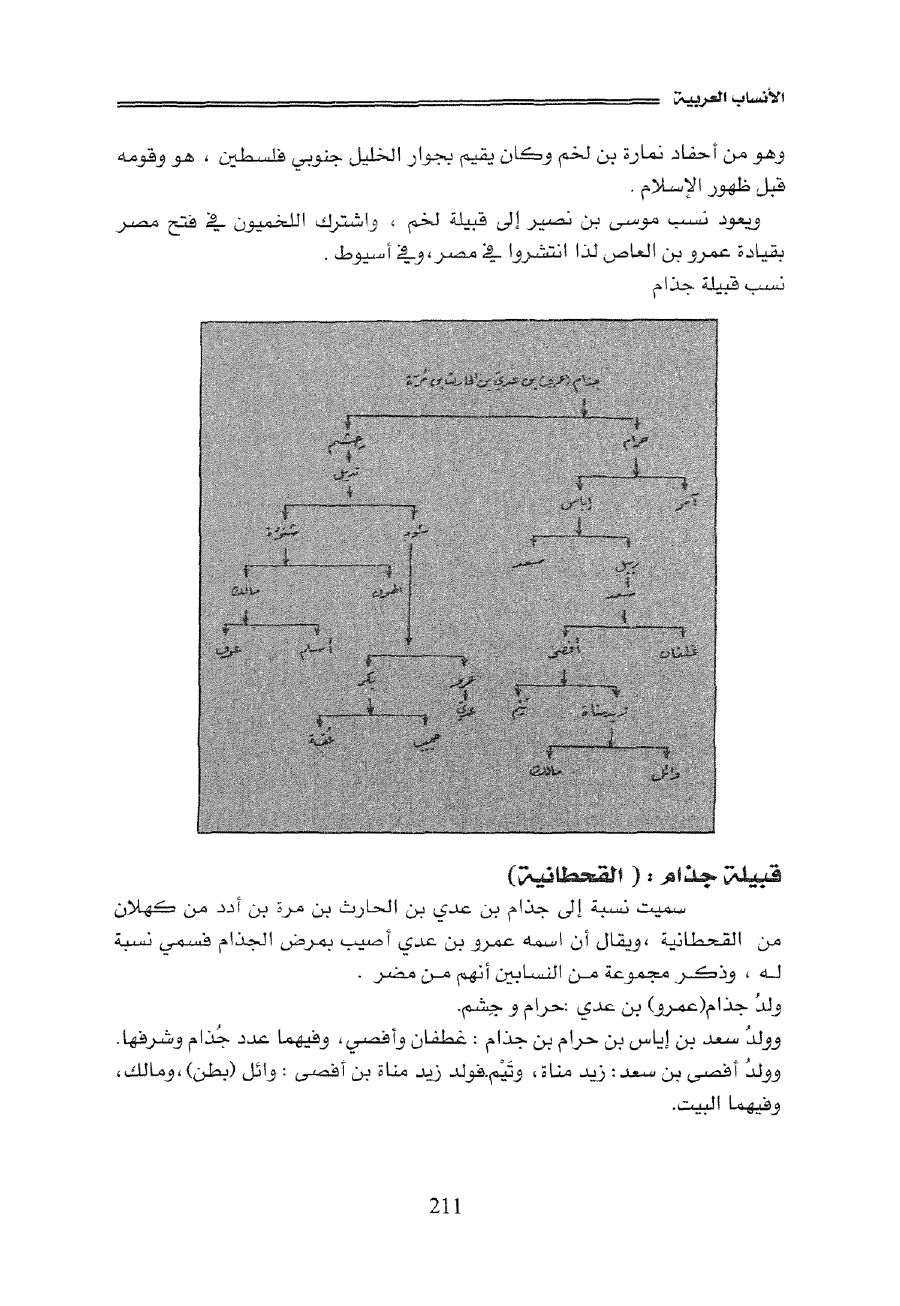 الأنساب العربية
وهو من أحفاد نمارة بن لخم وكان يقيم بجوار الخليل جنوبي فلسطين ، هو وقومه
قبل ظهور الإسلام .
ويعود نسب موسى بن نصير إلى قبيلة لخم ، واشترك اللخميون في فتح مصر
بقيادة عمرو بن العاص لذا انتشروا في مصر،وفي أسيوط .
نسب قبيلة جذام
جذام (عمرو) بن عدي بن الحارث بن مُرّة
حرام
جشم
آمر
إياس
تديل
سعد
شنوءة
سعد
مالك
غطفان
أفصى
أسلم
عوف
عمرو
بكر
زيد مناة
تَيْم
عديّ
حبيب
عُقبة
وائل
مالك
قبيلة جذام : ( القحطانية)
سميت نسبة إلى جذام بن عدي بن الحارث بن مرة بن أدد من كهلان
من القحطانية ،ويقال أن اسمه عمرو بن عدي أصيب بمرض الجذام فسمي نسبة
له ، وذكر مجموعة من النسابين أنهم من مضر .
ولدُ جذام(عمرو) بن عدي :حرام و جشم.
وولدُ سعد بن إياس بن حرام بن جذام : غطفان وأفصى، وفيهما عدد جُذام وشرفها.
وولدُ أفصى بن سعد: زيد مناة ، وتَيْم.فولد زيد مناة بن أفصى : وائل (بطن)،ومالك،
وفيهما البيت.
211